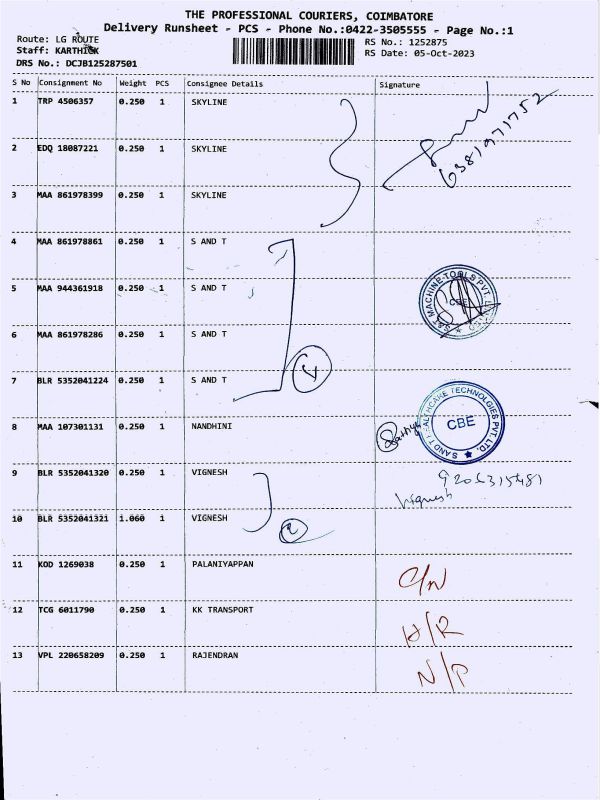 THE PROFESSIONAL COURIERS, COIMBATORE
Delivery Runsheet - PCS - Phone No.:0422-3505555 - Page No.:1
Route: LG ROUTE RS No.: 1252875
Staff: KARTHICK RS Date: 05-Oct-2023
DRS No.: DCJB125287501
S No Consignment No Weight PCS Consignee Details Signature
1 TRP 4506357 0.250 1 SKYLINE
6381971752
2 EDQ 18087221 0.250 1 SKYLINE
3 MAA 861978399 0.250 1 SKYLINE
4 MAA 861978861 0.250 1 S AND T
5 MAA 944361918 0.250 1 S AND T
S&T MACHINE TOOLS PVT. LTD
CBE
6 MAA 861978286 0.250 1 S AND T
7 BLR 5352041224 0.250 1 S AND T
4
S AND T HEALTHCARE TECHNOLGIES PVT. LTD.
CBE
8 MAA 107301131 0.250 1 NANDHINI
9 BLR 5352041320 0.250 1 VIGNESH
Vignesh
10 BLR 5352041321 1.060 1 VIGNESH
2
11 KOD 1269038 0.250 1 PALANIYAPPAN C/N
12 TCG 6011790 0.250 1 KK TRANSPORT H/R
13 VPL 220658209 0.250 1 RAJENDRAN N/P